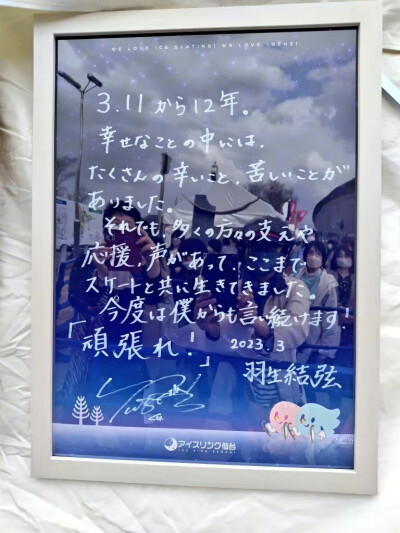 WE LOVE ICE SKATING! WE LOVE SENDAI
3.11から12年。
幸せなことの中には、
たくさんの辛いこと、苦しいことが
ありました。
それでも、多くの方々の支えや
応援、声があって、ここまで
スケートと共に生きてきました。
今度は僕からも言い続けます!
「頑張れ!」
2023.3
羽生結弦
アイスリンク仙台
ICE RINK SENDAI